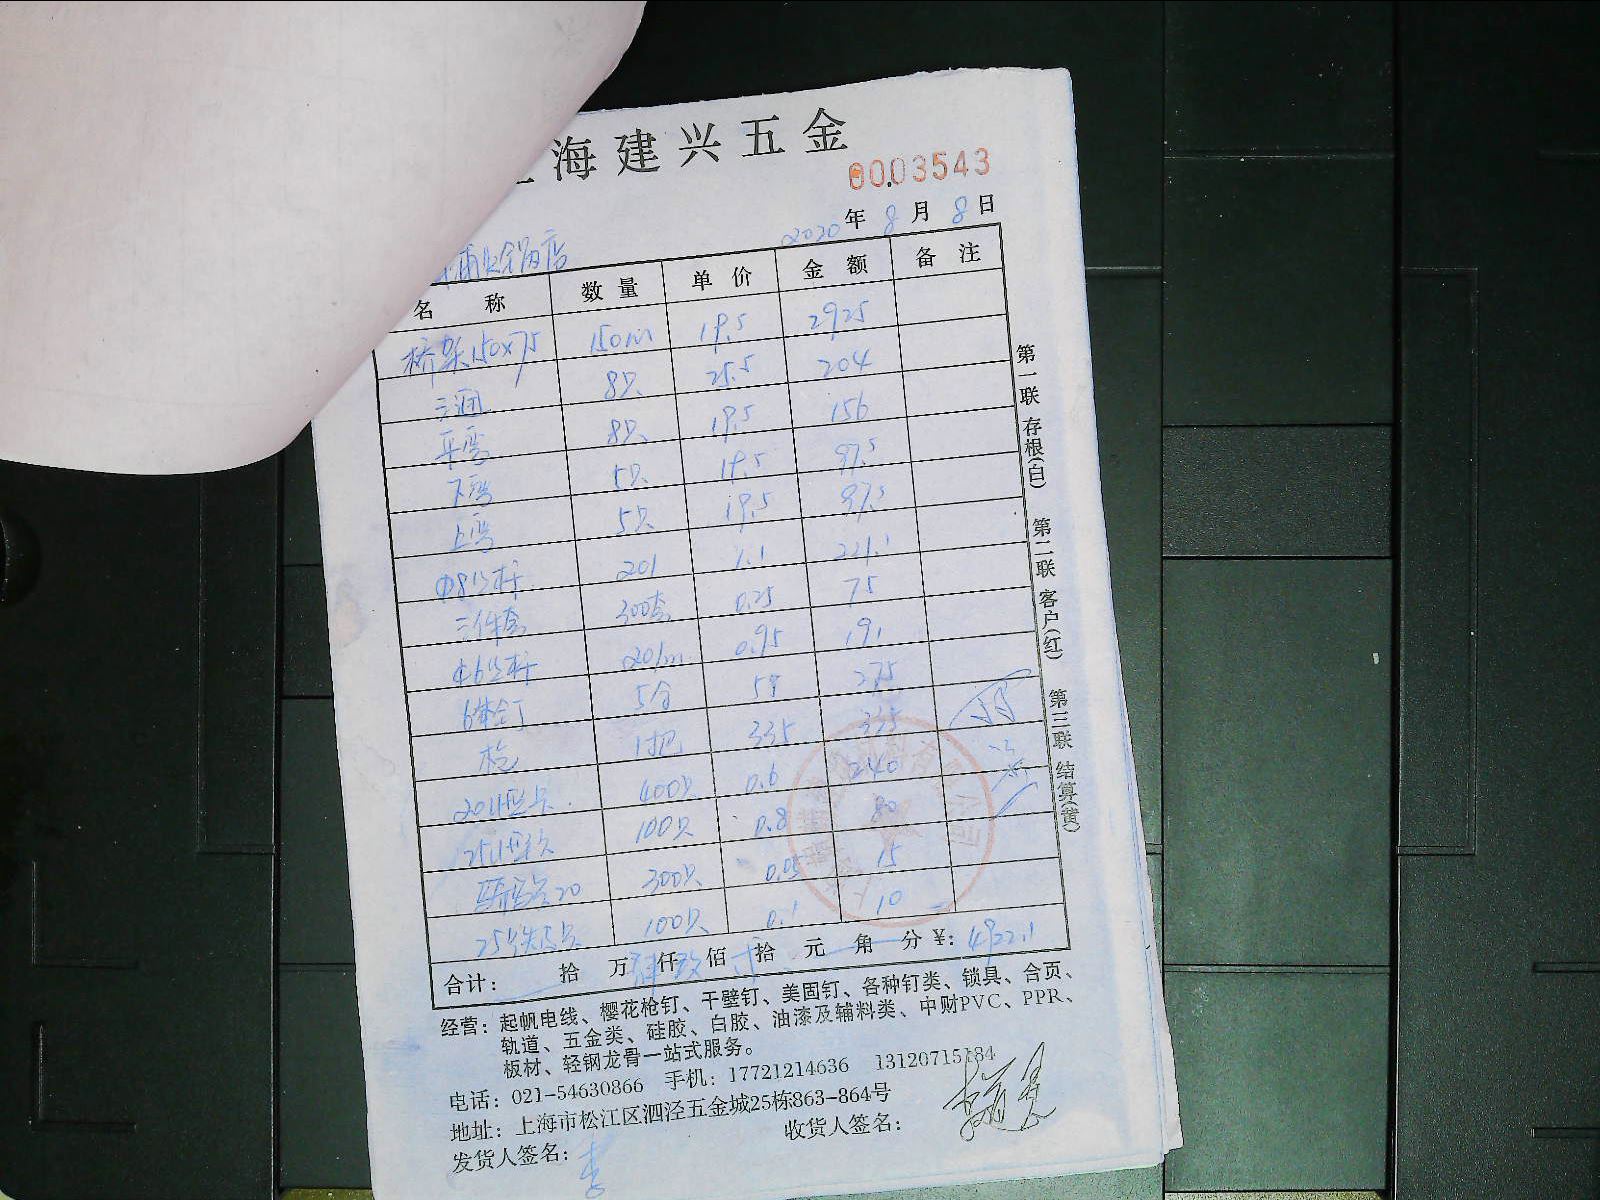 海建兴五金
0003543
2020年8月8日
名 称 数 量 单 价 金 额 备 注
桥架150×75 150m 19.5 2925
三通 8只 25.5 204
平弯 8只 19.5 156
下弯 5只 19.5 97.5
上弯 5只 19.5 97.5
Φ8 201 1.1 221.1
三件套 300套 0.25 75
Φ6 201m 0.95 191
5 275
枪 1把 335 335
20 400只 0.6 240
25 100只 0.8 80
20 300只 0.05 15
25 100只 0.1 10
合计： 拾 万 仟 佰 拾 元 角 分 ¥: 4922.1
第一联 存根(白) 第二联 客户(红) 第三联 结算(黄)
经营：起帆电线、樱花枪钉、干壁钉、美固钉、各种钉类、锁具、合页、
轨道、五金类、硅胶、白胶、油漆及辅料类、中财PVC、PPR、
板材、轻钢龙骨一站式服务。
电话：021-54630866 手机：17721214636 13120715184
地址：上海市松江区泗泾五金城25栋863-864号
发货人签名：李 收货人签名：